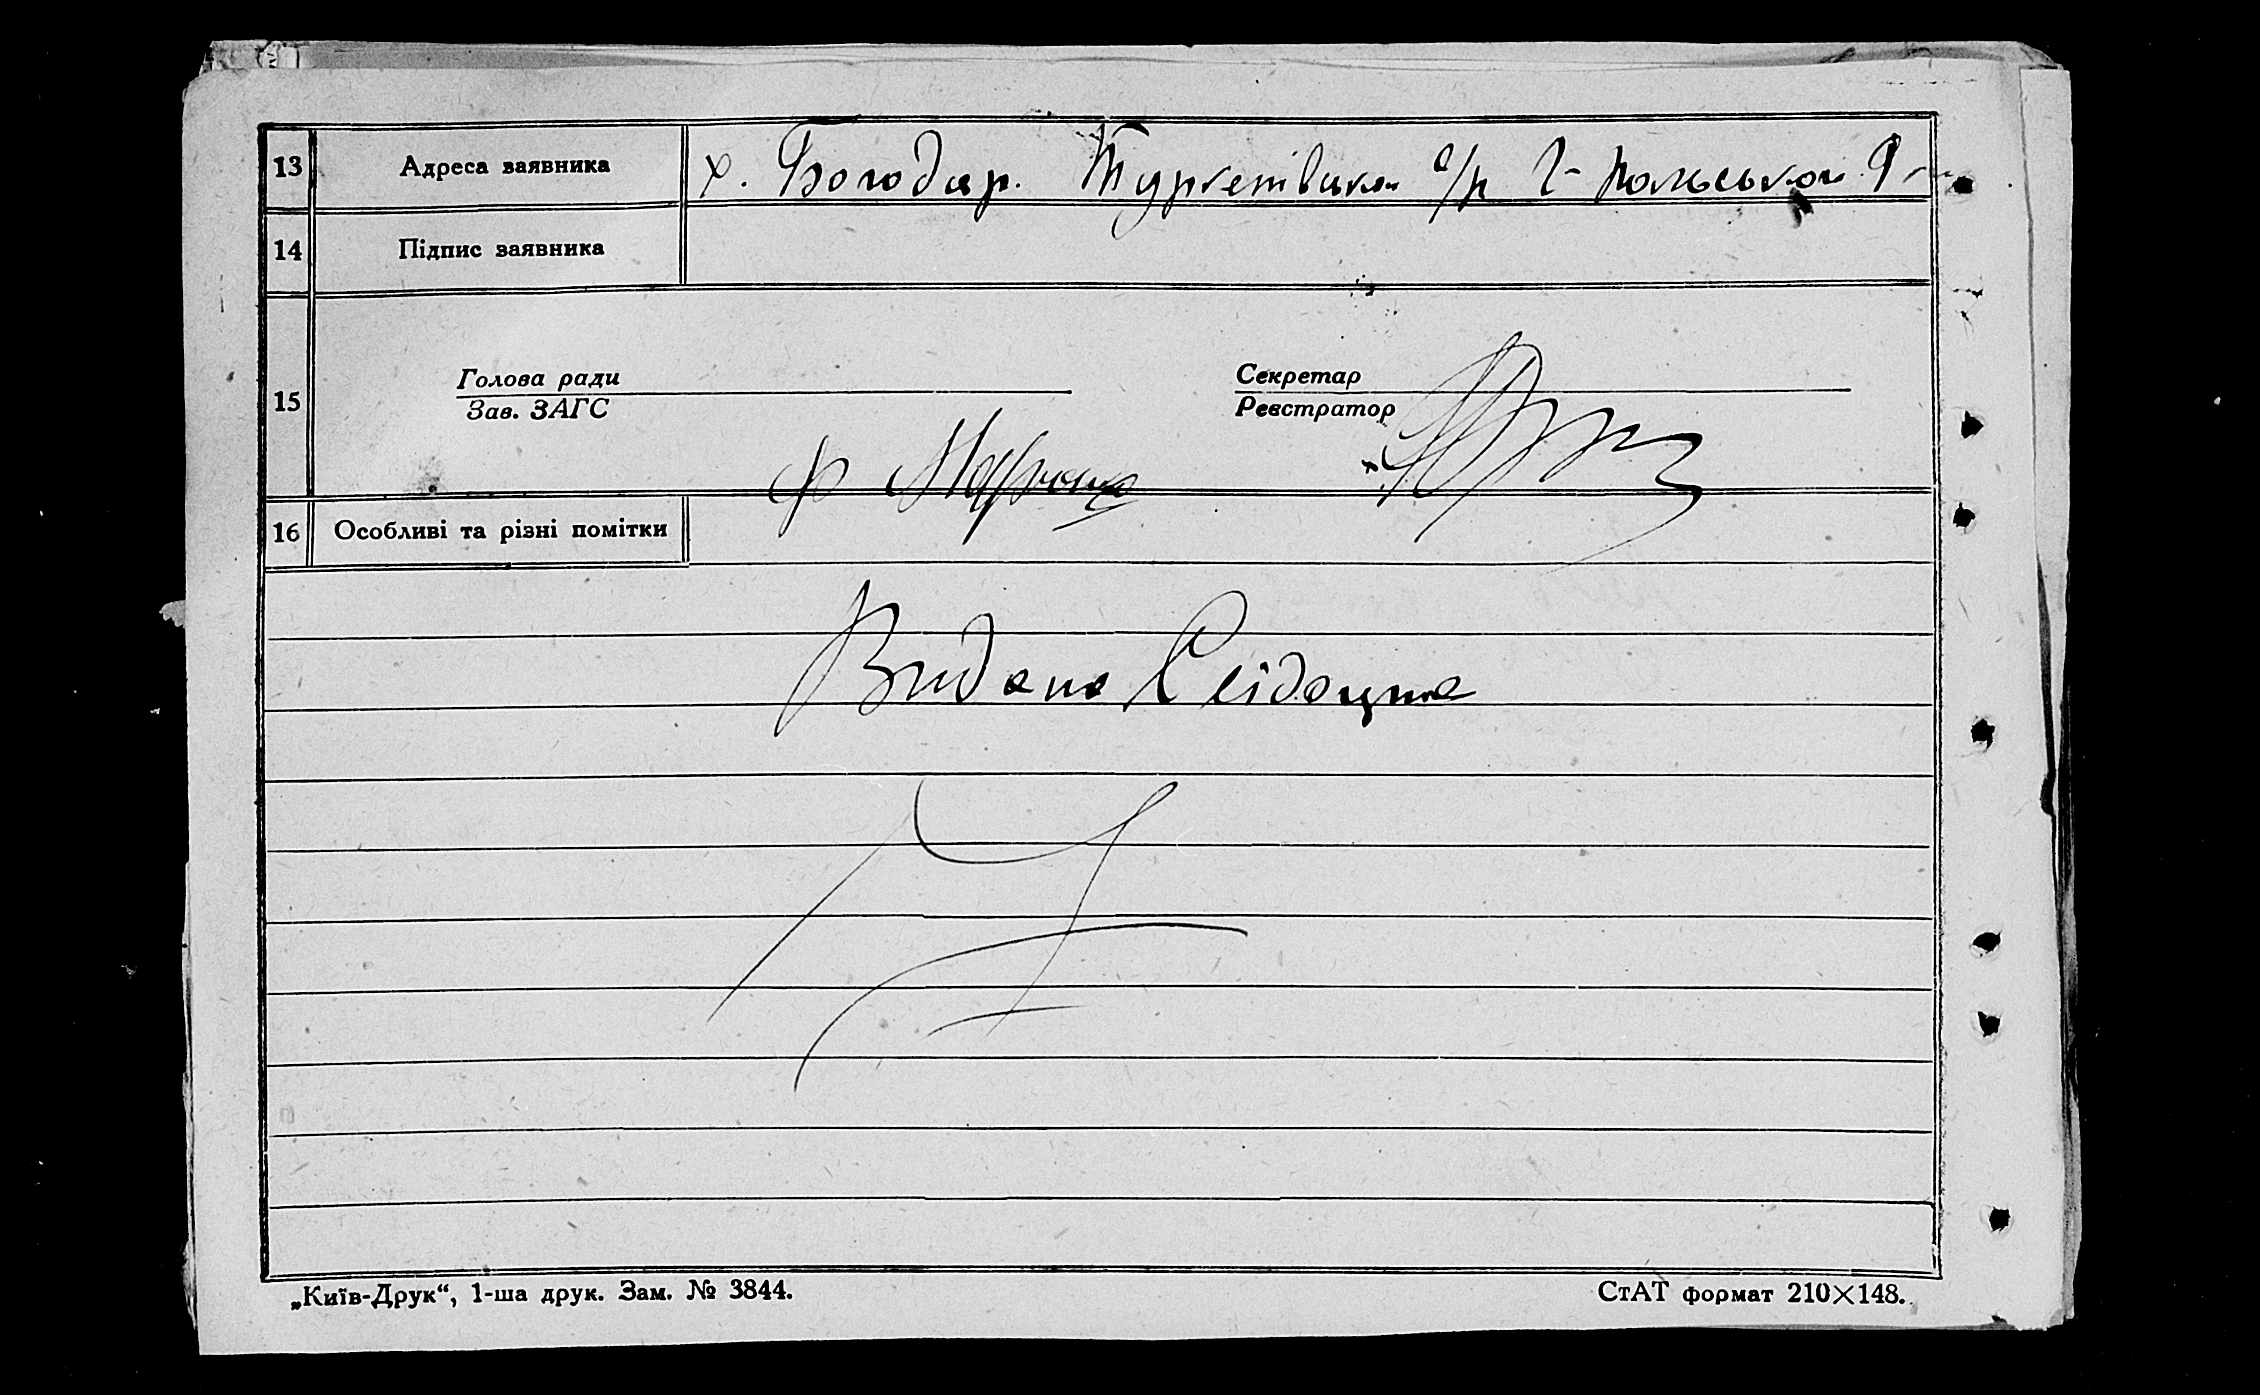 13 Адреса заявника х. Богодар. Туркенівської с/р Г-Польської Р
14 Підпис заявника
15 Голова ради Секретар
Зав. ЗАГС Реєстратор
16 Особливі та різні помітки
Видана
„Київ-Друк“, 1-ша друк. Зам. № 3844. СтАТ формат 210×148.